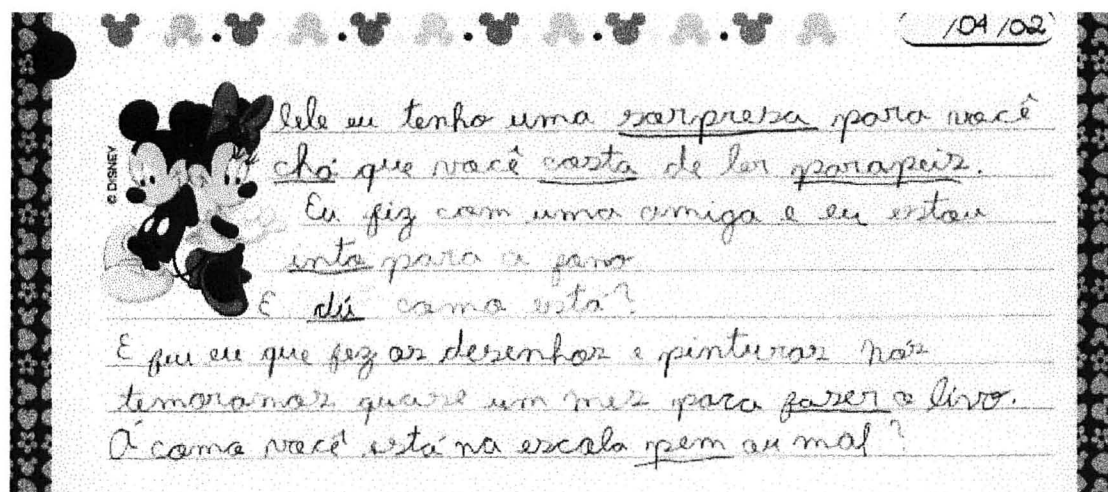 /04/02
© DISNEY
lele eu tenho uma sorpresa para você
chá que você costa de ler parapeis.
Eu fiz com uma amiga e eu estou
into para a
E dú como está?
E fui eu que fez os desenhos e pinturas nós
temoramos quase um mes para faser o livro.
Á como você está na escola pem ou mal?